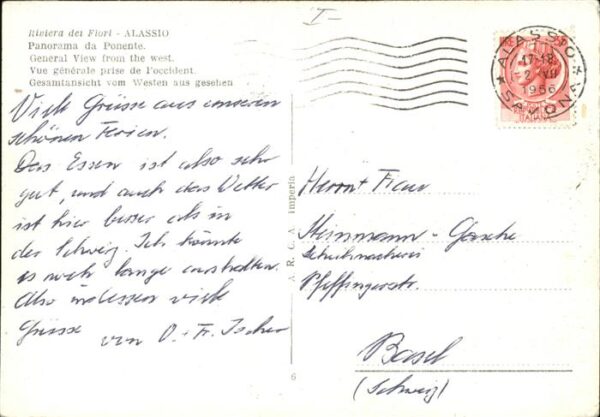 Riviera dei Fiori - ALASSIO
Panorama da Ponente.
General View from the west.
Vue générale prise de l'occident.
Gesamtansicht vom Westen aus gesehen
I-
ALASSIO
17-18
2 VII
1956
SAVONA
Viele Grüsse aus unseren
schönen Ferien.
Das Essen ist also sehr
gut, und auch das Wetter
ist hier besser als in
der Schweiz. Ich könnte
es noch lange aushalten.
Also indessen viele
Grüsse
von O. + Fr. Ischer
A. R. C. A. Imperia
6
Herrn + Frau
Steinmann-Gasche
Schuhmacherei
Pfeffingerstr.
Basel
(Schweiz)